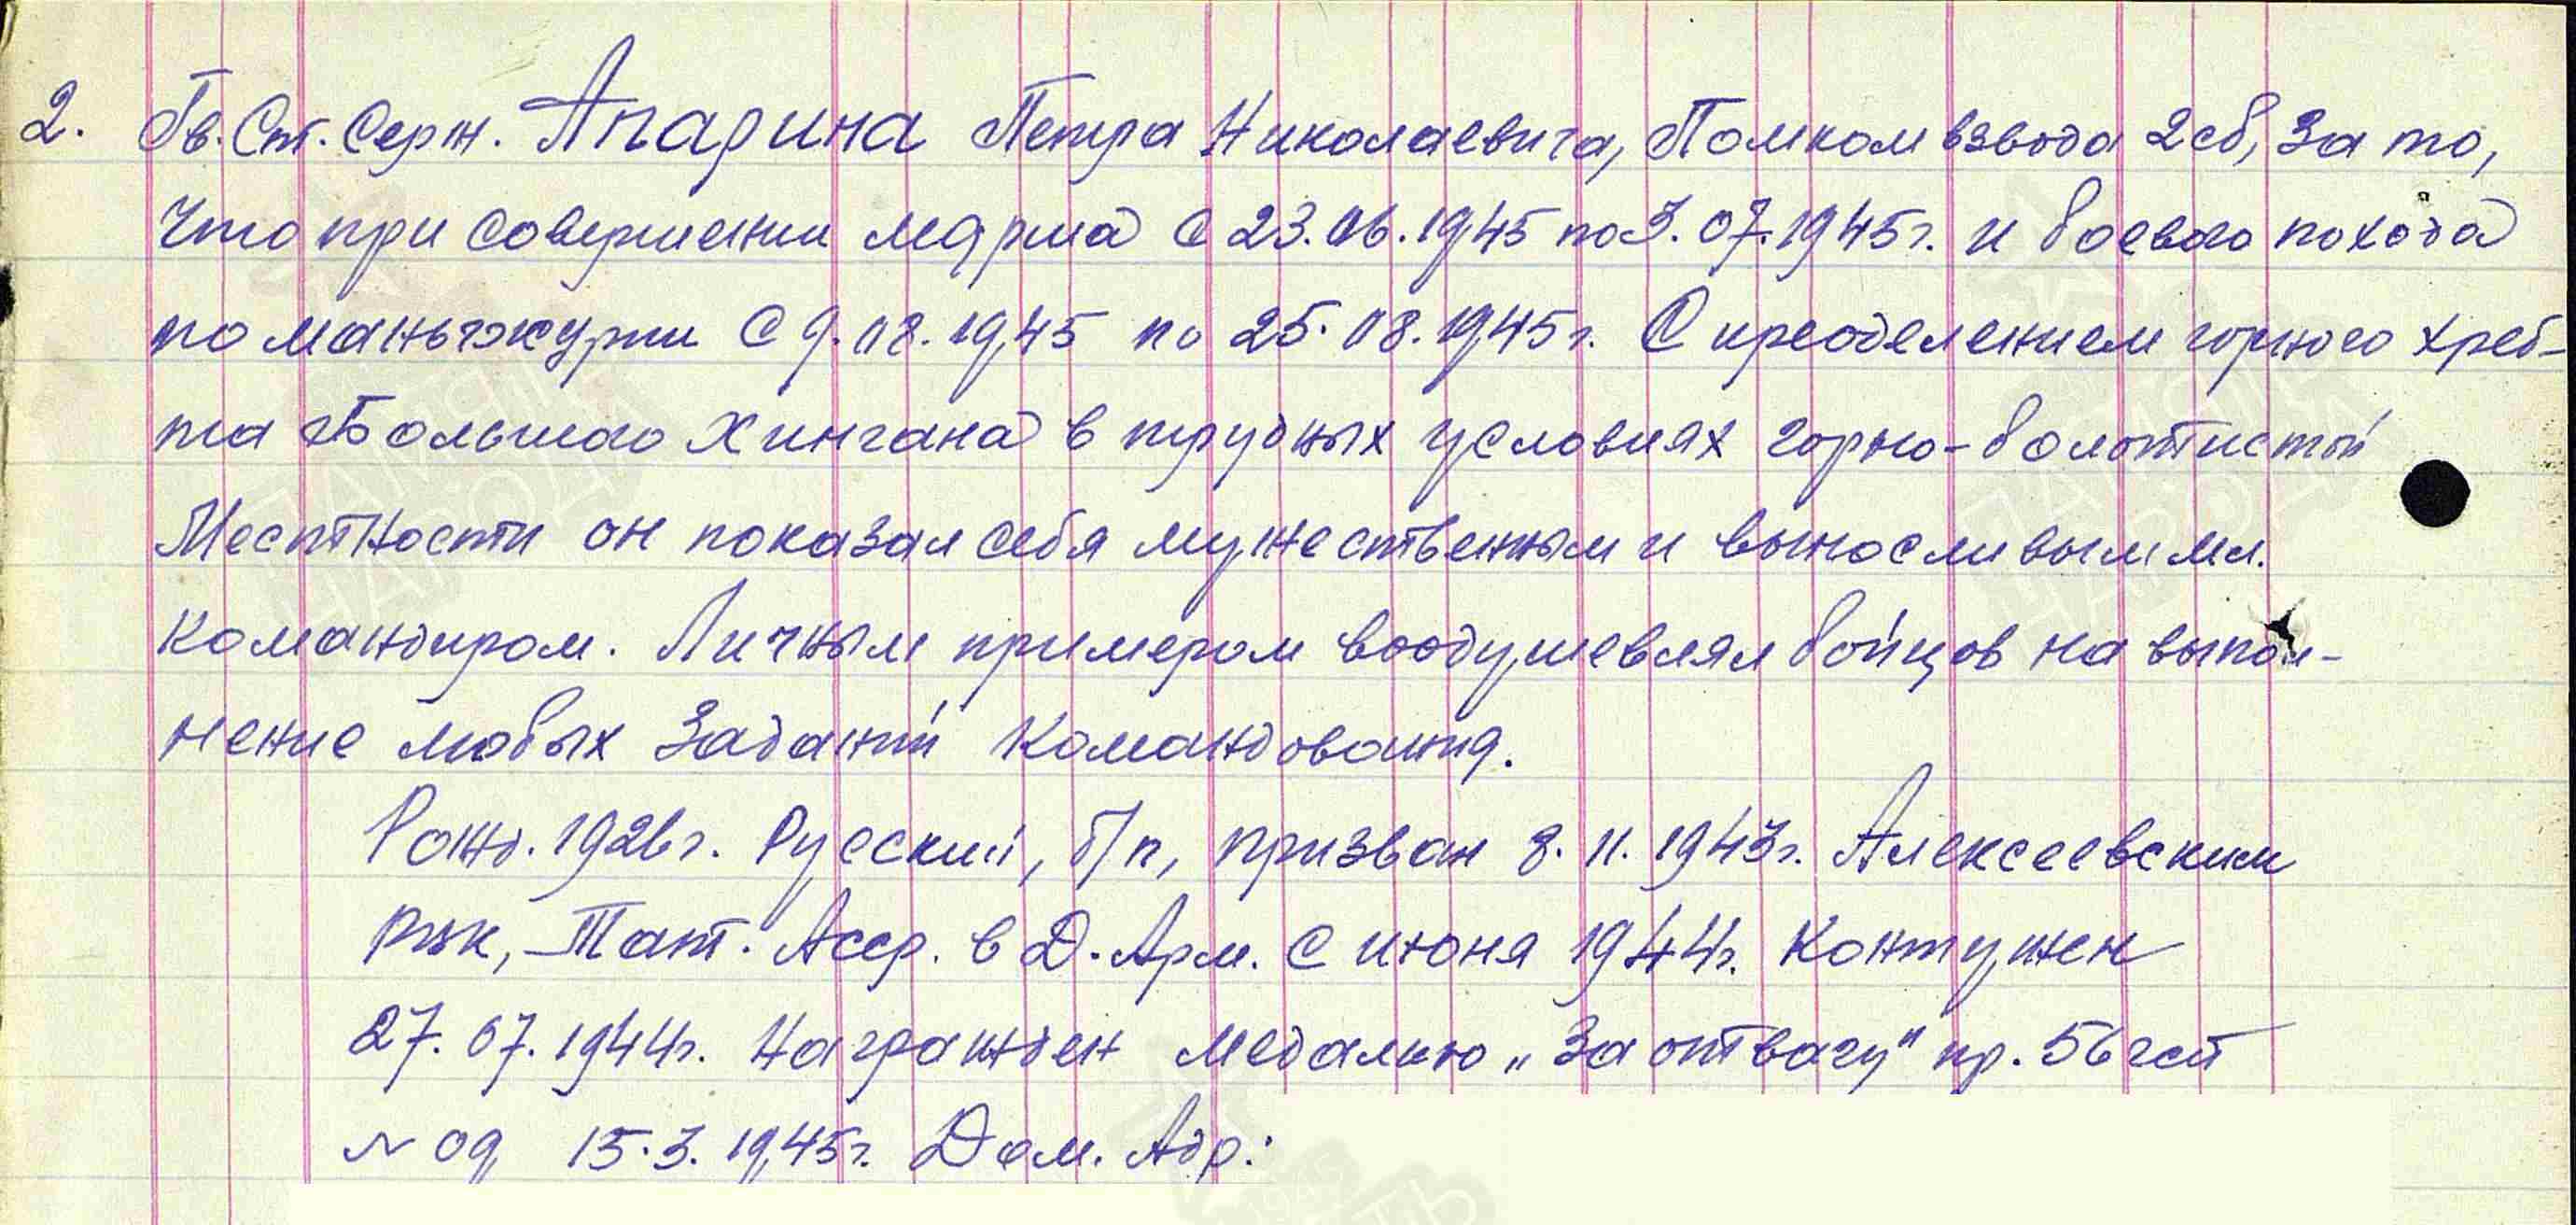 2. Гв. Ст. Серж. Апарина Петра Николаевича, Помком взвода 2 сб, за то,
что при совершении марша с 23.06.1945 по 3.07.1945 г. и боевого похода
по маньчжурии с 9.08.1945 по 25.08.1945 г. с преоделением горного хреб-
та Большого Хингана в трудных условиях горно-болотистой
местности он показал себя мужественным и выносливым мл.
командиром. Личным примером воодушевлял бойцов на выпол-
нение любых заданий командования.
Рожд. 1926 г. Русский, б/п, призван 8.11.1943 г. Алексеевским
рвк, Тат. Асср. в Д. Арм. с июня 1944 г. Контужен
27.07.1944 г. Награжден медалью „За отвагу" пр. 56 гсп
№ 09 15.3.1945 г. Дом. Адр: